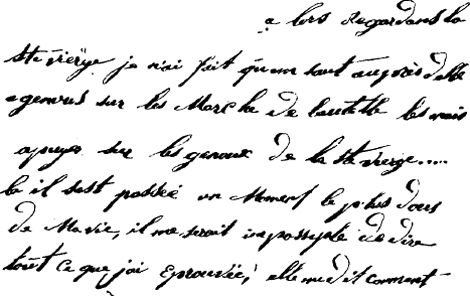 a lors Regardans la
Ste vierge je n'ai fait qu'un saut auprès d'elle
a genoux sur les Marche de l'autelle les mais
apuyer sur les genoux de la Ste vierge.....
la il s'est passée un Moment le plus doux
de Ma vie, il me serait impossyble de dire
tout ce que j'ai éprouvée, elle me dit comment